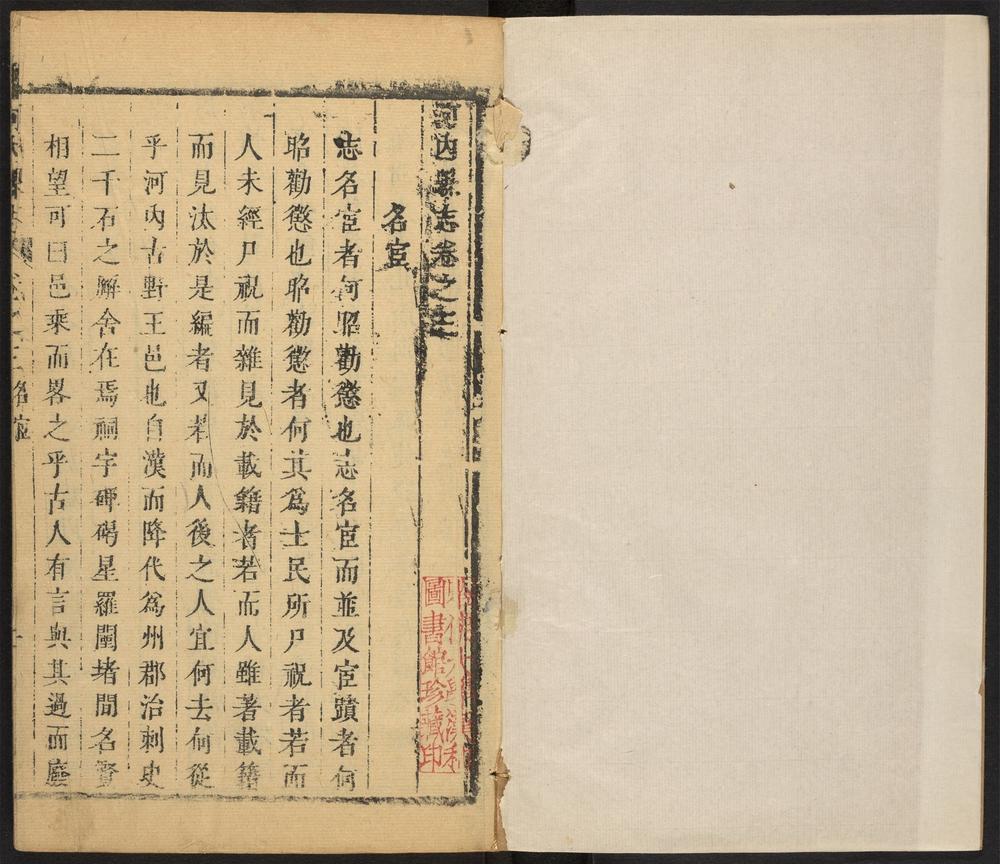 河內縣志卷之三
名宦
志名宦者何昭勸懲也志名宦而並及宦蹟者何
昭勸懲也昭勸懲者何其爲士民所尸祝者若而
人未經尸祝而雜見於載籍者若而人雖著載籍
而見汰於是編者又若而人後之人宜何去何從
乎河內古野王邑也自漢而降代爲州郡治刺史
二千石之廨舍在焉祠宇碑碣星羅闤堵間名賢
相望可曰邑乘而畧之乎古人有言與其過而廢
卷之三 名宦
圖書館珍藏印